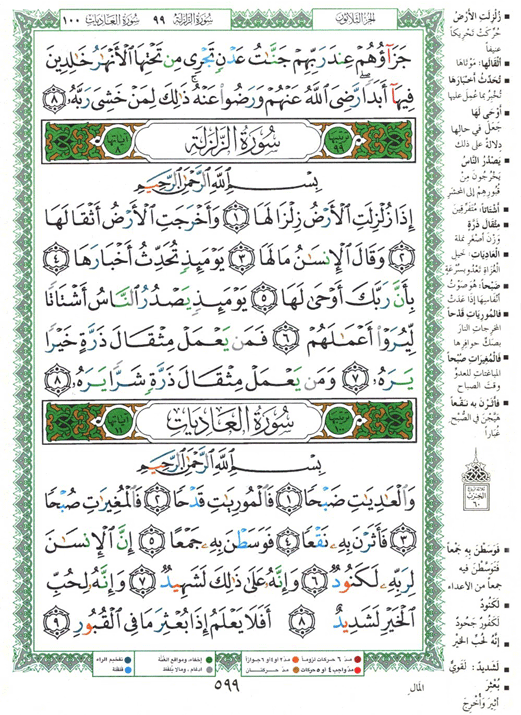 سُورَةُ العَادِيَاتِ ١٠٠
سُورَةُ الزَّلْزَلَةِ ٩٩
الجُزءُ الثَّلَاثُونَ
جَزَآؤُهُمْ عِندَ رَبِّهِمْ جَنَّٰتُ عَدْنٍ تَجْرِى مِن تَحْتِهَا ٱلْأَنْهَٰرُ خَٰلِدِينَ
فِيهَآ أَبَدًا رَّضِىَ ٱللَّهُ عَنْهُمْ وَرَضُوا۟ عَنْهُ ذَٰلِكَ لِمَنْ خَشِىَ رَبَّهُۥ ٨
سُورَةُ الزَّلْزَلَةِ
ترتيبها ٩٩
آياتها ٨
بِسْمِ ٱللَّهِ ٱلرَّحْمَٰنِ ٱلرَّحِيمِ
إِذَا زُلْزِلَتِ ٱلْأَرْضُ زِلْزَالَهَا ١ وَأَخْرَجَتِ ٱلْأَرْضُ أَثْقَالَهَا
٢ وَقَالَ ٱلْإِنسَٰنُ مَا لَهَا ٣ يَوْمَئِذٍ تُحَدِّثُ أَخْبَارَهَا ٤
بِأَنَّ رَبَّكَ أَوْحَىٰ لَهَا ٥ يَوْمَئِذٍ يَصْدُرُ ٱلنَّاسُ أَشْتَاتًا
لِّيُرَوْا۟ أَعْمَٰلَهُمْ ٦ فَمَن يَعْمَلْ مِثْقَالَ ذَرَّةٍ خَيْرًا
يَرَهُۥ ٧ وَمَن يَعْمَلْ مِثْقَالَ ذَرَّةٍ شَرًّا يَرَهُۥ ٨
سُورَةُ العَادِيَاتِ
ترتيبها ١٠٠
آياتها ١١
بِسْمِ ٱللَّهِ ٱلرَّحْمَٰنِ ٱلرَّحِيمِ
وَٱلْعَٰدِيَٰتِ ضَبْحًا ١ فَٱلْمُورِيَٰتِ قَدْحًا ٢ فَٱلْمُغِيرَٰتِ صُبْحًا
٣ فَأَثَرْنَ بِهِۦ نَقْعًا ٤ فَوَسَطْنَ بِهِۦ جَمْعًا ٥ إِنَّ ٱلْإِنسَٰنَ
لِرَبِّهِۦ لَكَنُودٌ ٦ وَإِنَّهُۥ عَلَىٰ ذَٰلِكَ لَشَهِيدٌ ٧ وَإِنَّهُۥ لِحُبِّ
ٱلْخَيْرِ لَشَدِيدٌ ٨ أَفَلَا يَعْلَمُ إِذَا بُعْثِرَ مَا فِى ٱلْقُبُورِ ٩
زُلْزِلَتِ الأَرْضُ
حُرِّكَتْ تحريكاً
عنيفاً
أَثْقَالَهَا: مَوْتَاهَا
تُحَدِّثُ أَخْبَارَهَا
تُخْبِرُ بما عُمِلَ عليها
أَوْحَى لَهَا
جَعَلَ في حالِها
دلالةً على ذلك
يَصْدُرُ النَّاسُ
يَخْرُجُونَ مِنْ
قُبورِهِم إلى المحشر
أَشْتَاتاً: مُتَفَرِّقِينَ
مِثْقَالَ ذَرَّةٍ
وَزْنَ أَصْغَرِ نملة
العَادِيَاتِ: خيل
الغُزاةِ تَعْدُو بسُرْعَةٍ
ضَبْحاً: هو صَوْتُ
أنفاسِها إذا عَدَتْ
فَالمُورِيَاتِ قَدْحاً
المُخرِجاتِ النارَ
بصَكِّ حوافرِها
فَالمُغِيرَاتِ صُبْحاً
المباغتاتِ للعدوِّ
وقتَ الصباحِ
فَأَثَرْنَ بِهِ نَقْعاً
هَيَّجْنَ في الصُّبْحِ
غُبَاراً
الحزب
٦٠
فَوَسَطْنَ بِهِ جَمْعاً
فَتَوَسَّطْنَ فيه
جمعاً من الأعداء
لَكَنُودٌ
لَكَفُورٌ جَحُودٌ
إِنَّهُ لِحُبِّ الخَيْرِ
المالِ
لَشَدِيدٌ: لَقَوِيٌّ
بُعْثِرَ
أُثِيرَ وأُخْرِجَ
مدّ ٦ حركات لزوماً
مدّ ٢ أو ٤ أو ٦ جوازاً
إخفاء، ومواقع الغُنَّة
تفخيم الراء
مدّ واجب ٤ أو ٥ حركات
مدّ حركتان
إدغام، وما لا يُلفَظ
قلقلة
٥٩٩